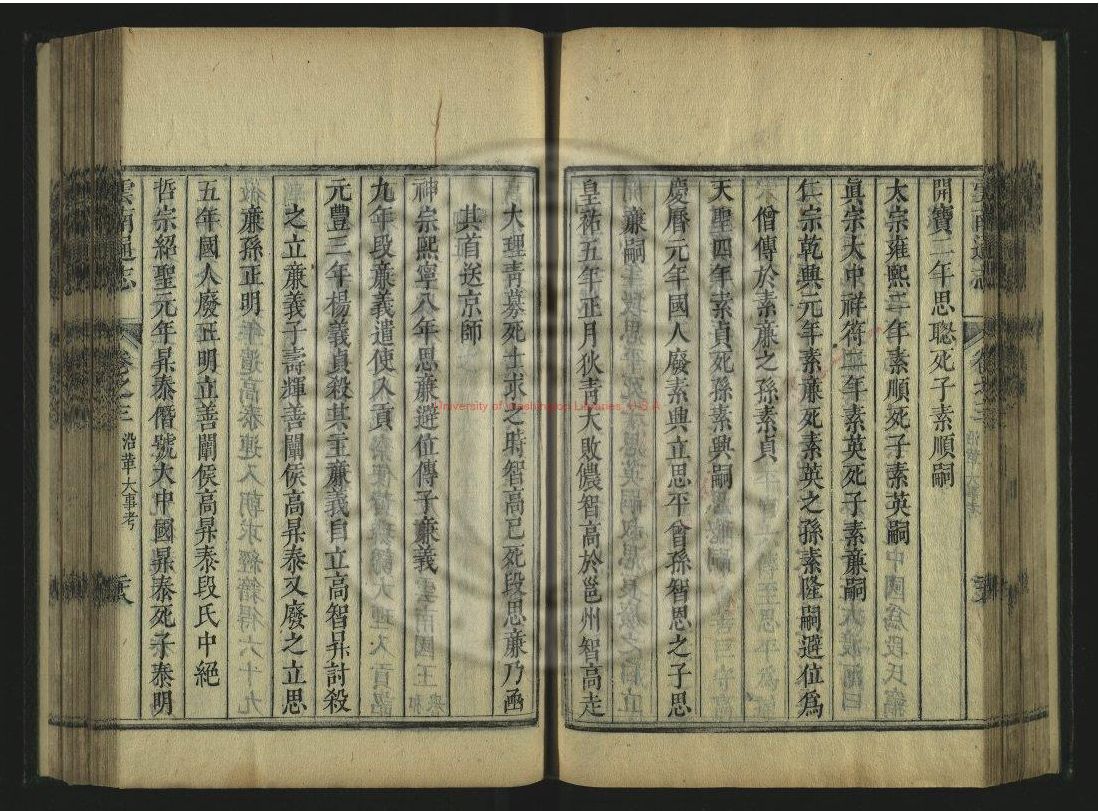 開寶二年思聦死子素順嗣
太宗雍熙二年素順死子素英嗣
眞宗大中祥符二年素英死子素亷嗣
仁宗乾興元年素亷死素英之孫素隆嗣避位爲
僧傳於素亷之孫素貞
天聖四年素貞死孫素興嗣
慶曆元年國人廢素興立思平曾孫智思之子思
亷嗣
皇祐五年正月狄靑大敗儂智高於邕州智高走
大理靑募死士求之時智高已死段思亷乃函
其首送京師
神宗熙寧八年思亷避位傳子亷義
九年段亷義遣使入貢
元豐三年楊義貞殺其主亷義自立高智昇討殺
之立亷義子壽輝善闡侯高昇泰又廢之立思
亷孫正明
五年國人廢正明立善闡侯高昇泰段氏中絕
哲宗紹聖元年昇泰僭號大中國昇泰死子泰明
雲南通志 卷之三 沿革大事考
University of Washington Libraries, U S A